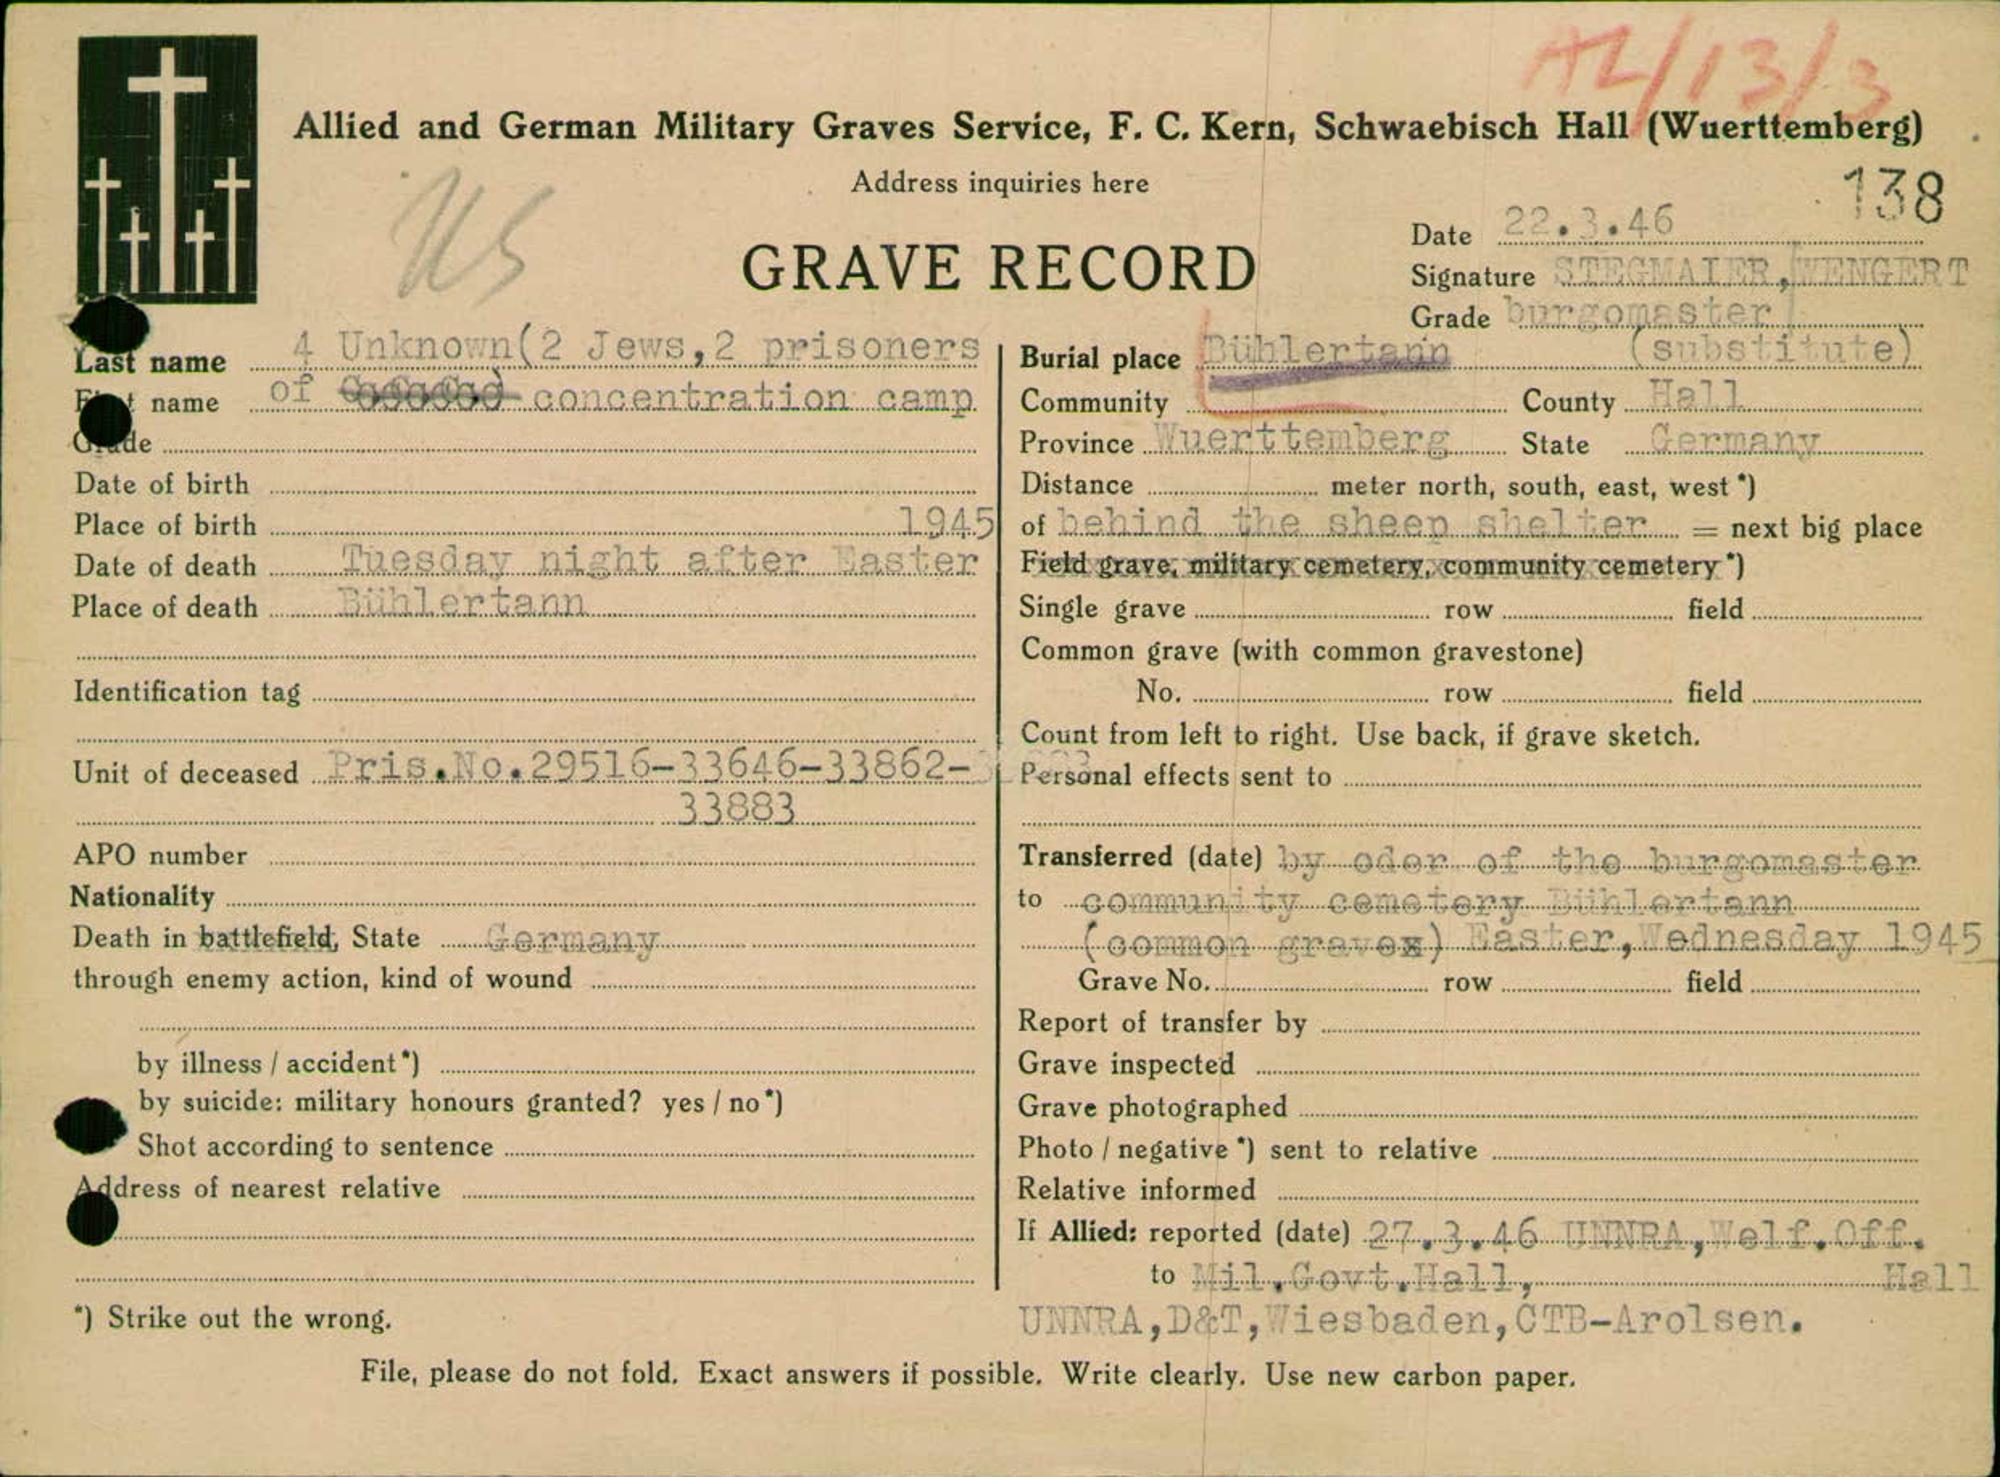 AL/13/3
Allied and German Military Graves Service, F. C. Kern, Schwaebisch Hall (Wuerttemberg)
Address inquiries here
138
US
GRAVE RECORD
Date 22.3.46
Signature STEGMAIER, WENGERT
Grade burgomaster
(substitute)
Last name 4 Unknown(2 Jews,2 prisoners
First name of concentration camp
Grade
Date of birth
Place of birth 1945
Date of death Tuesday night after Easter
Place of death Bühlertann
Identification tag
Unit of deceased Pris.No.29516-33646-33862-
33883
APO number
Nationality
Death in battlefield, State Germany
through enemy action, kind of wound
by illness / accident*)
by suicide: military honours granted? yes / no*)
Shot according to sentence
Address of nearest relative
*) Strike out the wrong.
Burial place Bühlertann
Community County Hall
Province Wuerttemberg State Germany
Distance meter north, south, east, west *)
of behind the sheep shelter = next big place
Field grave, military cemetery, community cemetery *)
Single grave row field
Common grave (with common gravestone)
No. row field
Count from left to right. Use back, if grave sketch.
Personal effects sent to
Transferred (date) by oder of the burgomaster
to community cemetery Bühlertann
(common gravex) Easter,Wednesday 1945
Grave No. row field
Report of transfer by
Grave inspected
Grave photographed
Photo / negative *) sent to relative
Relative informed
If Allied: reported (date) 27.3.46 UNNRA,Welf.Off.
to Mil.Govt.Hall, Hall
UNNRA,D&T,Wiesbaden,CTB-Arolsen.
File, please do not fold. Exact answers if possible. Write clearly. Use new carbon paper.